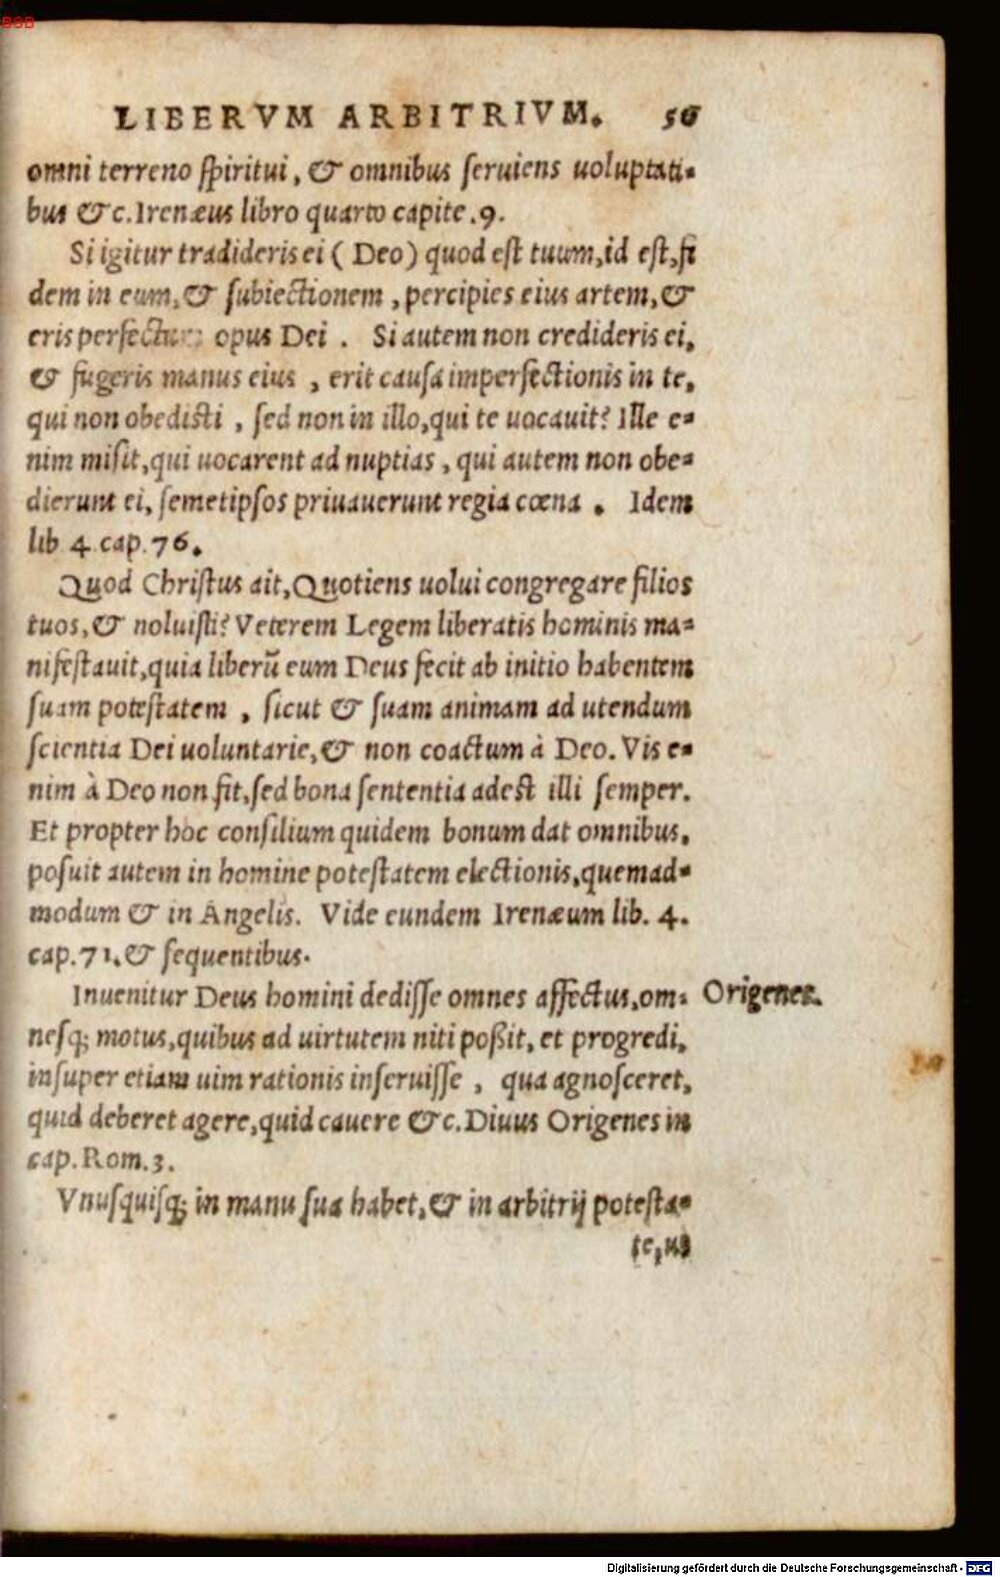 BSB
LIBERVM ARBITRIVM. 56
omni terreno spiritui, & omnibus seruiens uoluptati-
bus &c. Irenæus libro quarto capite .9.
Si igitur tradideris ei ( Deo ) quod est tuum, id est, fi
dem in eum, & subiectionem, percipies eius artem, &
eris perfectum opus Dei . Si autem non credideris ei,
& fugeris manus eius , erit causa imperfectionis in te,
qui non obedisti , sed non in illo, qui te uocauit? Ille e-
nim misit, qui uocarent ad nuptias , qui autem non obe-
dierunt ei, semetipsos priuauerunt regia cœna . Idem
lib 4. cap. 76.
Quod Christus ait, Quotiens uolui congregare filios
tuos, & noluisti? Veterem Legem liberatis hominis ma-
nifestauit, quia liberū eum Deus fecit ab initio habentem
suam potestatem , sicut & suam animam ad utendum
scientia Dei uoluntarie, & non coactum à Deo. Vis e-
nim à Deo non fit, sed bona sententia adest illi semper.
Et propter hoc consilium quidem bonum dat omnibus,
posuit autem in homine potestatem electionis, quemad-
modum & in Angelis. Vide eundem Irenæum lib. 4.
cap. 71. & sequentibus.
Inuenitur Deus homini dedisse omnes affectus, om-
Origenes.
nesq; motus, quibus ad uirtutem niti poßit, et progredi,
insuper etiam uim rationis inseruisse , qua agnosceret,
quid deberet agere, quid cauere &c. Diuus Origenes in
cap. Rom. 3.
Vnusquisq; in manu sua habet, & in arbitrij potesta-
te, ut
Digitalisierung gefördert durch die Deutsche Forschungsgemeinschaft - DFG